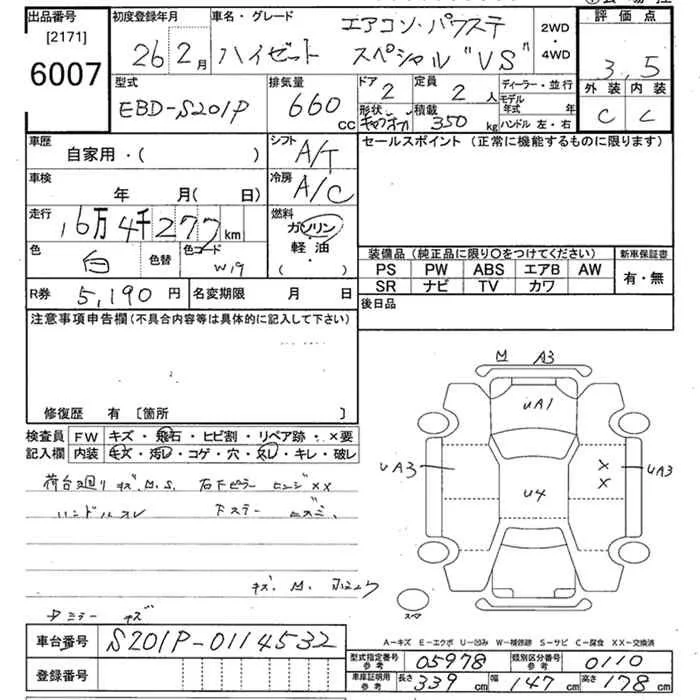 出品番号
[2171]
6007
初度登録年月
26年2月
車名・グレード
ハイゼット
エアコン・パワステ
スペシャル "VS"
2WD
・
4WD
評価点
3.5
外装 内装
C C
型式
EBD-S201P
排気量
660 cc
ドア
2
定員
2人
形状
積載
350 kg
ディーラー・並行
モデル年式 年
ハンドル 左・右
車歴
自家用・( )
シフト
A/T
車検
年 月( 日)
冷房
A/C
走行
16万4千277km
燃料
ガソリン
軽・油
・( )
色
白
色替
色コード
W19
R券 5,190円
名変期限 月 日
セールスポイント(正常に機能するものに限ります)
装備品(純正品に限り〇をつけてください) 新車保証書
PS PW ABS エアB AW
SR ナビ TV カワ
有・無
後日品
注意事項申告欄(不具合内容等は具体的に記入して下さい)
修復歴 有 [箇所 ]
検査員記入欄
FW キズ・飛石・ヒビ割・リペア跡・×要
内装 キズ・汚レ・コゲ・穴・スレ・キレ・破レ
荷台廻り キズ.M.S. 右下ピラー ××
ハンドルスレ 下ステー
キズ. M.
ミラー キズ
M A3
UA1
UA3
U4
×
×
UA3
スペア
A-キズ E-エクボ U-凹み W-補修跡 S-サビ C-腐食 XX-交換済
車台番号 S201P-0114532
登録番号
型式指定番号 参考 05978 類別区分番号 参考 0110
車庫証明用 参考 長さ 339cm 幅 147cm 高さ 178cm